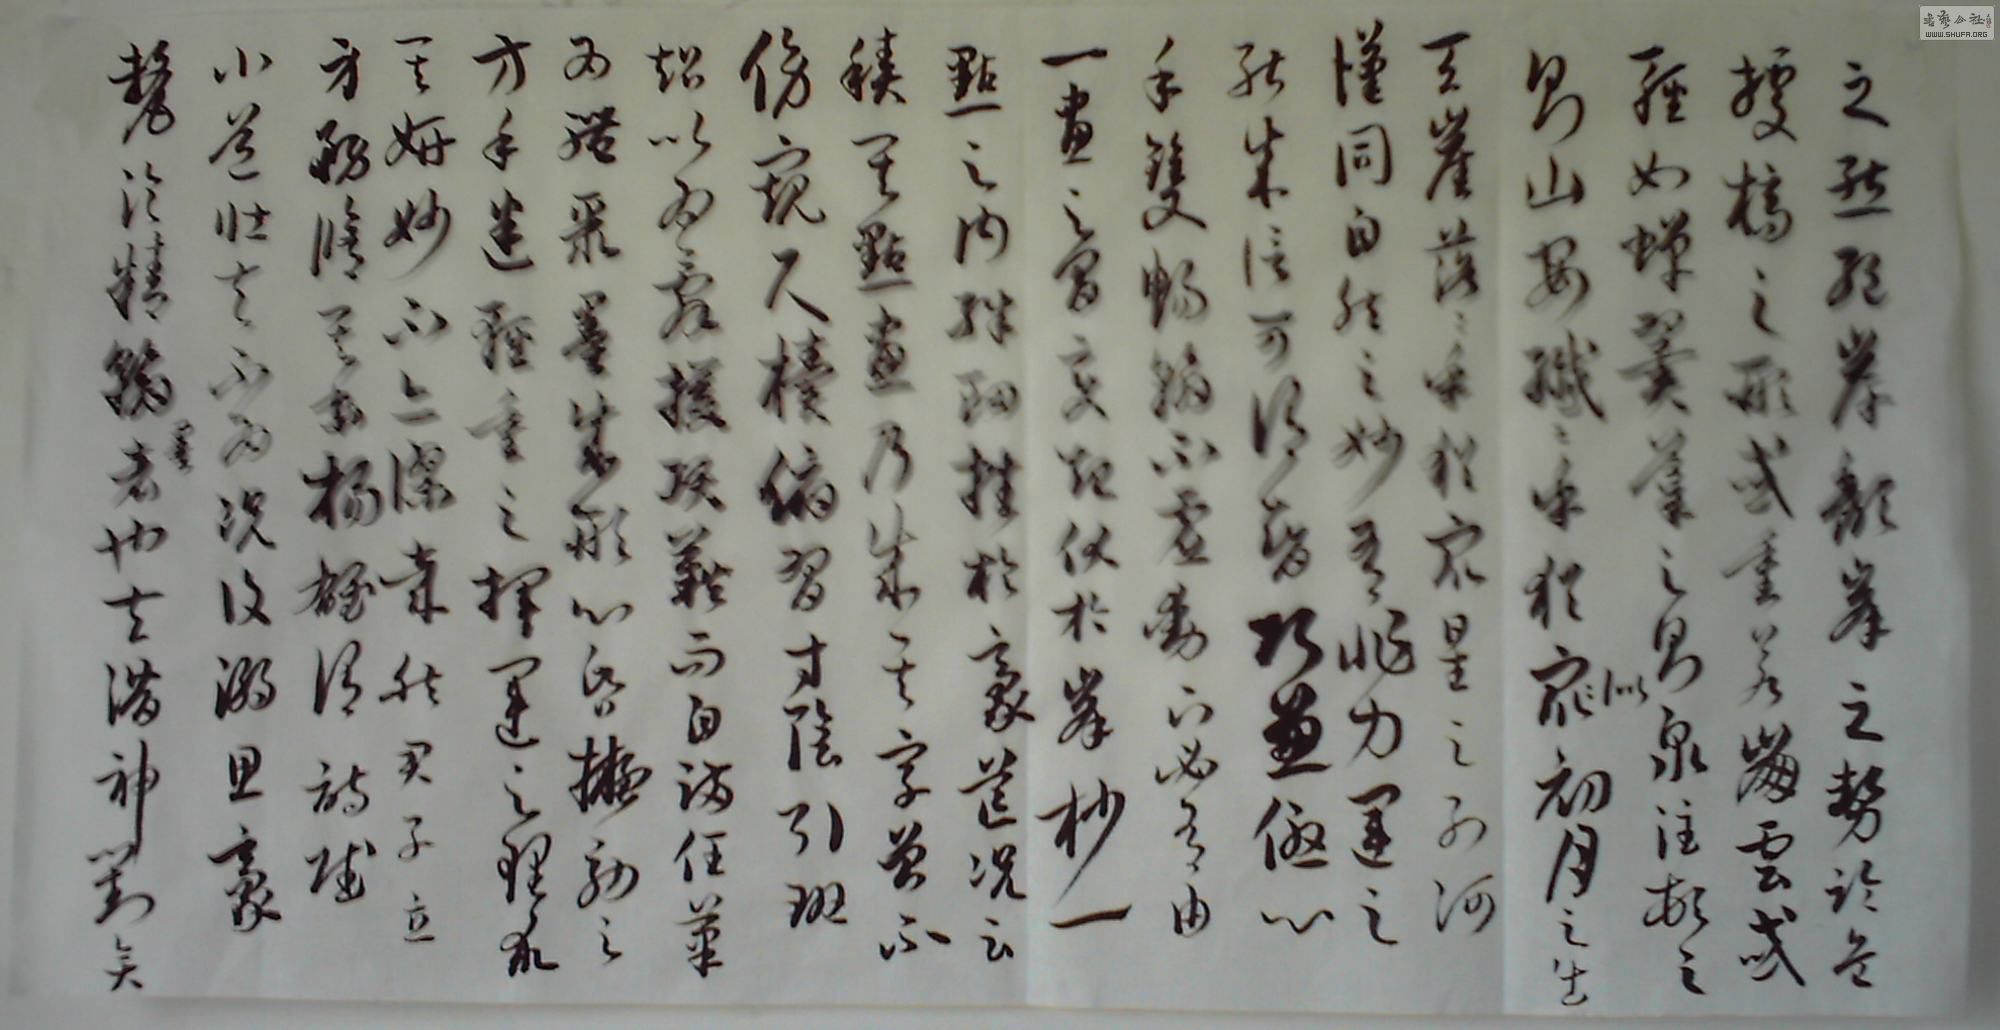 之態絕岸頹峯之勢臨危
據槁之形或重若崩雲或
輕如蟬翼導之則泉注頓之
則山安纖〻乎猶眾似初月之出
天崖落〻乎猶眾星之列河
漢同自然之妙有非力運之
能成信可謂智巧兼優心
手雙暢翰不虛動下必有由
一畫之間變起伏於峯杪一
點之內殊衄挫於豪芒況云
積其點畫乃成其字曾不
傍窺尺櫝俯習寸陰引班
超以為辭援項籍而自滿任筆
為體聚墨成形心昏擬效之
方手迷輕重之揮運之理求
其妍妙不亦謬哉然君子立
身務脩其本楊雄謂詩賦
小道壯夫不為況復溺思豪
釐淪精翰墨者也夫潛神對奕
書藝公社
WWW.SHUFA.ORG